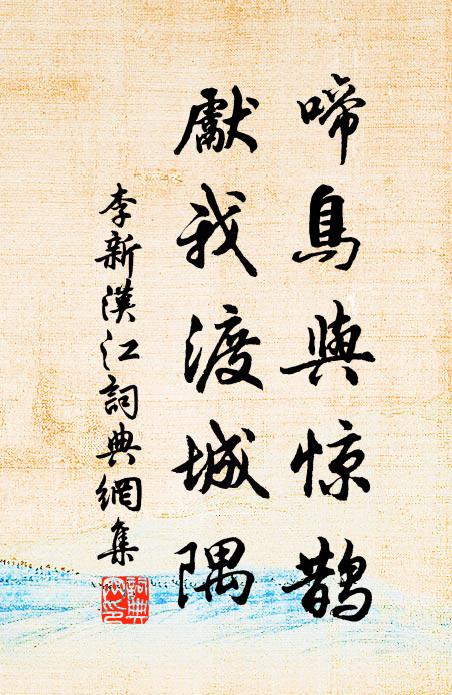 啼鳥與惊鵲
獻我渡城隅
李新漢江詞典網集